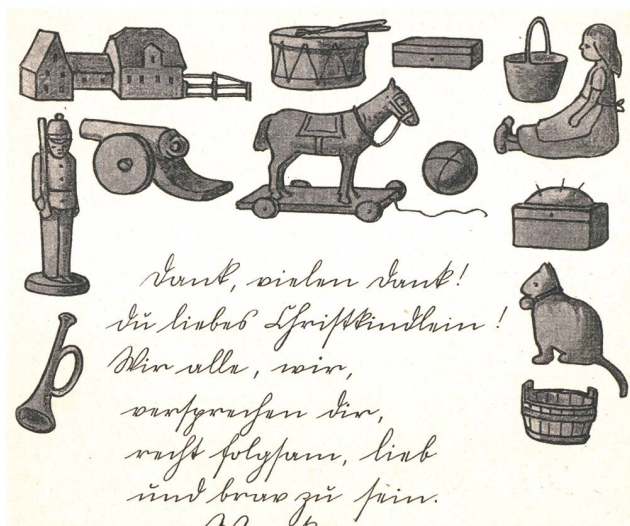 Dank, vielen Dank!
Du liebes Christkindlein!
Wir alle, wir,
versprechen dir,
recht folgsam, lieb
und brav zu sein.